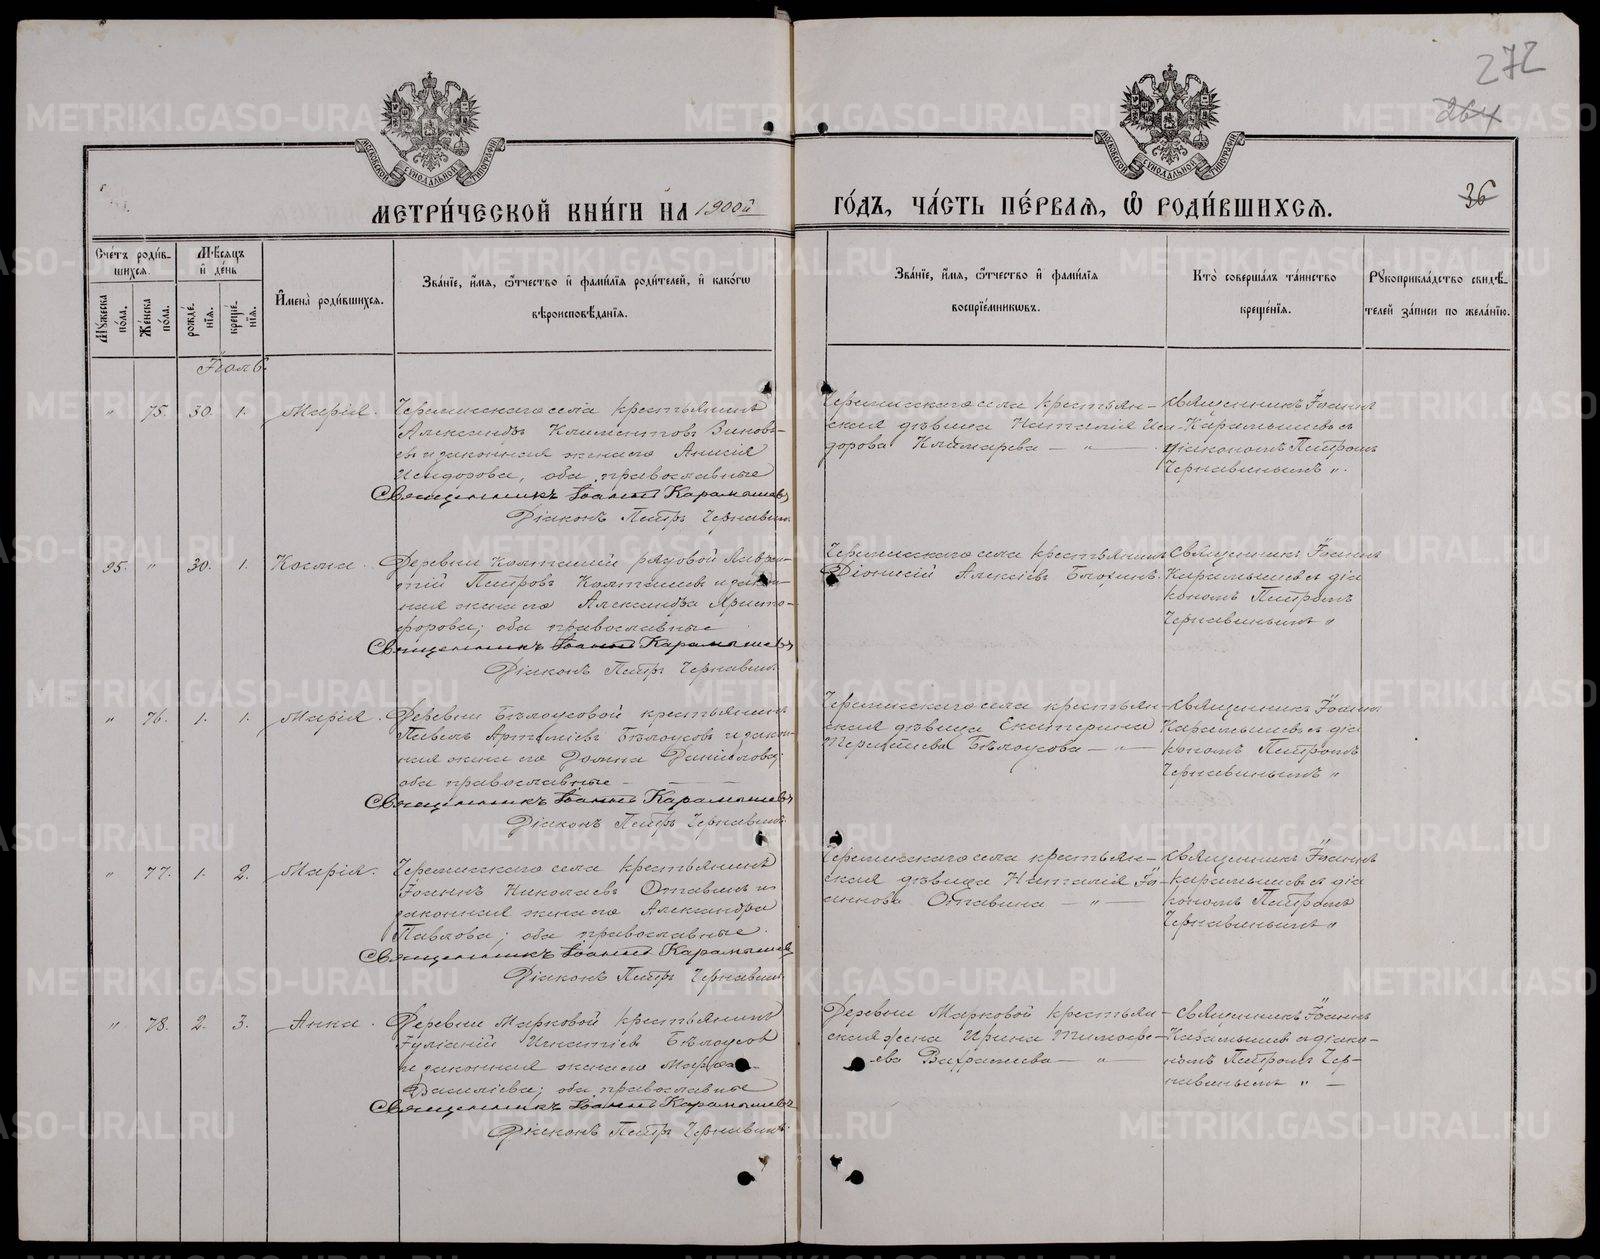 272
264
МОСКОВСКОЙ СУНОДАЛЬНОЙ ТИПОГРАФІИ
МОСКОВСКОЙ СУНОДАЛЬНОЙ ТИПОГРАФІИ
МЕТРИ́ЧЕСКОЙ КНИ́ГИ НА 1900й ГО́ДЪ, ЧА́СТЬ ПЕ́РВАѦ, Ѽ РОДИ́ВШИХСѦ.
36
Сче́тъ роди́в-
шихсѧ.
Мѣ́сѧцъ
и҆ де́нь
Мꙋ́жеска по́ла.
Же́нска по́ла.
рожде́-
нїѧ.
креще́-
нїѧ.
И҆мена̀ роди́вшихсѧ.
Зва́нїе, и҆́мѧ, ѻ҆́тчество и҆ фами́лїѧ роди́телей, и҆ како́гѡ
вѣроисповѣ́данїѧ.
Зва́нїе, и҆́мѧ, ѻ҆́тчество и҆ фами́лїѧ
воспрїе́мникѡвъ.
Кто̀ соверша́лъ та́инство
креще́нїѧ.
Рꙋкоприкла́дство свидѣ́-
телей за́писи по жела́нїю.
Іюль
" 75. 30. 1. Марія.
Черемисскаго села крестьянинъ
Александръ Климентовъ Зиновь-
евъ и законная жена его Анисія
Исидорова, оба православные
Священникъ Іоаннъ Карамышевъ
Діаконъ Петръ Чернавинъ.
Черемисскаго села крестьян-
ская дѣвица Наталія Иси-
дорова Климарева — " —
Священникъ Іоаннъ
Карамышевъ съ
діакономъ Петромъ
Чернавинымъ ".
95. " 30. 1. Косма.
Деревни Колташей рядовой Лаврен-
тій Петровъ Колташевъ и закон-
ная жена его Александра Христо-
форова; оба православные
Священникъ Іоаннъ Карамышевъ
Діаконъ Петръ Чернавинъ
Черемисскаго села крестьянинъ
Діонисій Алексіевъ Блохинъ.
Священникъ Іоаннъ
Карамышевъ съ діа
кономъ Петромъ
Чернавинымъ "
" 76. 1. 1. Марія.
Деревни Бѣлоусовой крестьянинъ
Павелъ Артеміевъ Бѣлоусовъ и закон-
ная жена его Домна Даниилова;
оба православные —
Священникъ Іоаннъ Карамышевъ
Діаконъ Петръ Чернавинъ
Черемисскаго села крестьян-
ская дѣвица Екатерина
Терентіева Бѣлоусова — " —
Священникъ Іоаннъ
Карамышевъ съ діа
кономъ Петромъ
Чернавинымъ "
" 77. 1. 2. Марія.
Черемисскаго села крестьянинъ
Іоаннъ Николаевъ Отавинъ и
законная жена его Александра
Павлова; оба православные.
Священникъ Іоаннъ Карамышевъ
Діаконъ Петръ Чернавинъ
Черемисскаго села крестьян-
ская дѣвица Наталія Іо-
аннова Отавина — " —
Священникъ Іоаннъ
Карамышевъ съ діа
кономъ Петромъ
Чернавинымъ "
" 78. 2. 3. Анна.
Деревни Марковой крестьянинъ
Іуліаній Игнатіевъ Бѣлоусовъ
и законная жена его Марѳа
Василіева; оба православные
Священникъ Іоаннъ Карамышевъ
Діаконъ Петръ Чернавинъ.
Деревни Марковой крестьян-
ская жена Ирина Тимоѳе-
ева — " —
Священникъ Іоаннъ
Карамышевъ съ діако-
номъ Петромъ Чер-
навинымъ " —
METRIKI.GASO-URAL.RU